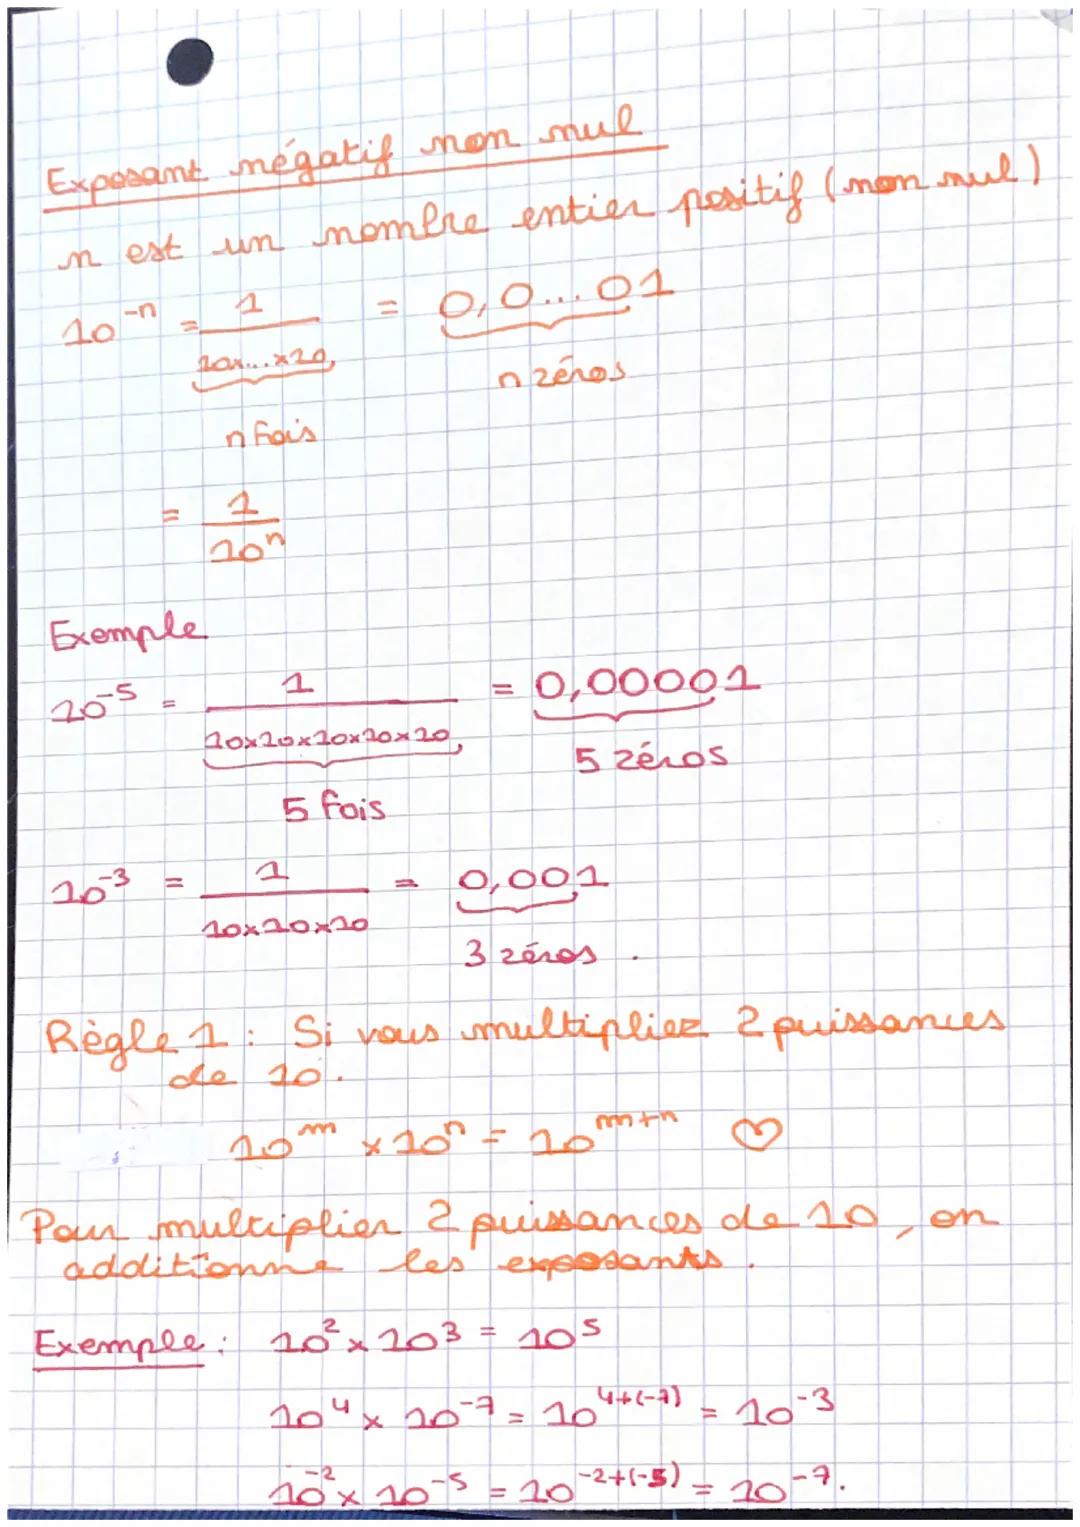 Exposant négatif non nul
n est un nombre entier positif (non nul)
10^-n = 1/(10x...x10) = 0,0...01
n zéros
n fois
= 1/10^n
Exemple
10^-5 = 1/(10x10x10x10x10) = 0,00001
5 zéros
5 fois
10^-3 = 1/(10x10x10) = 0,001
3 zéros.
Règle 1 : Si vous multipliez 2 puissances
de 10.
10^m x 10^n = 10^m+n ♡
Pour multiplier 2 puissances de 10, on
additionne les exposants.
Exemple : 10^2 x 10^3 = 10^5
10^4 x 10^-7 = 10^4+(-7) = 10^-3
10^-2 x 10^-5 = 10^-2+(-5) = 10^-7.